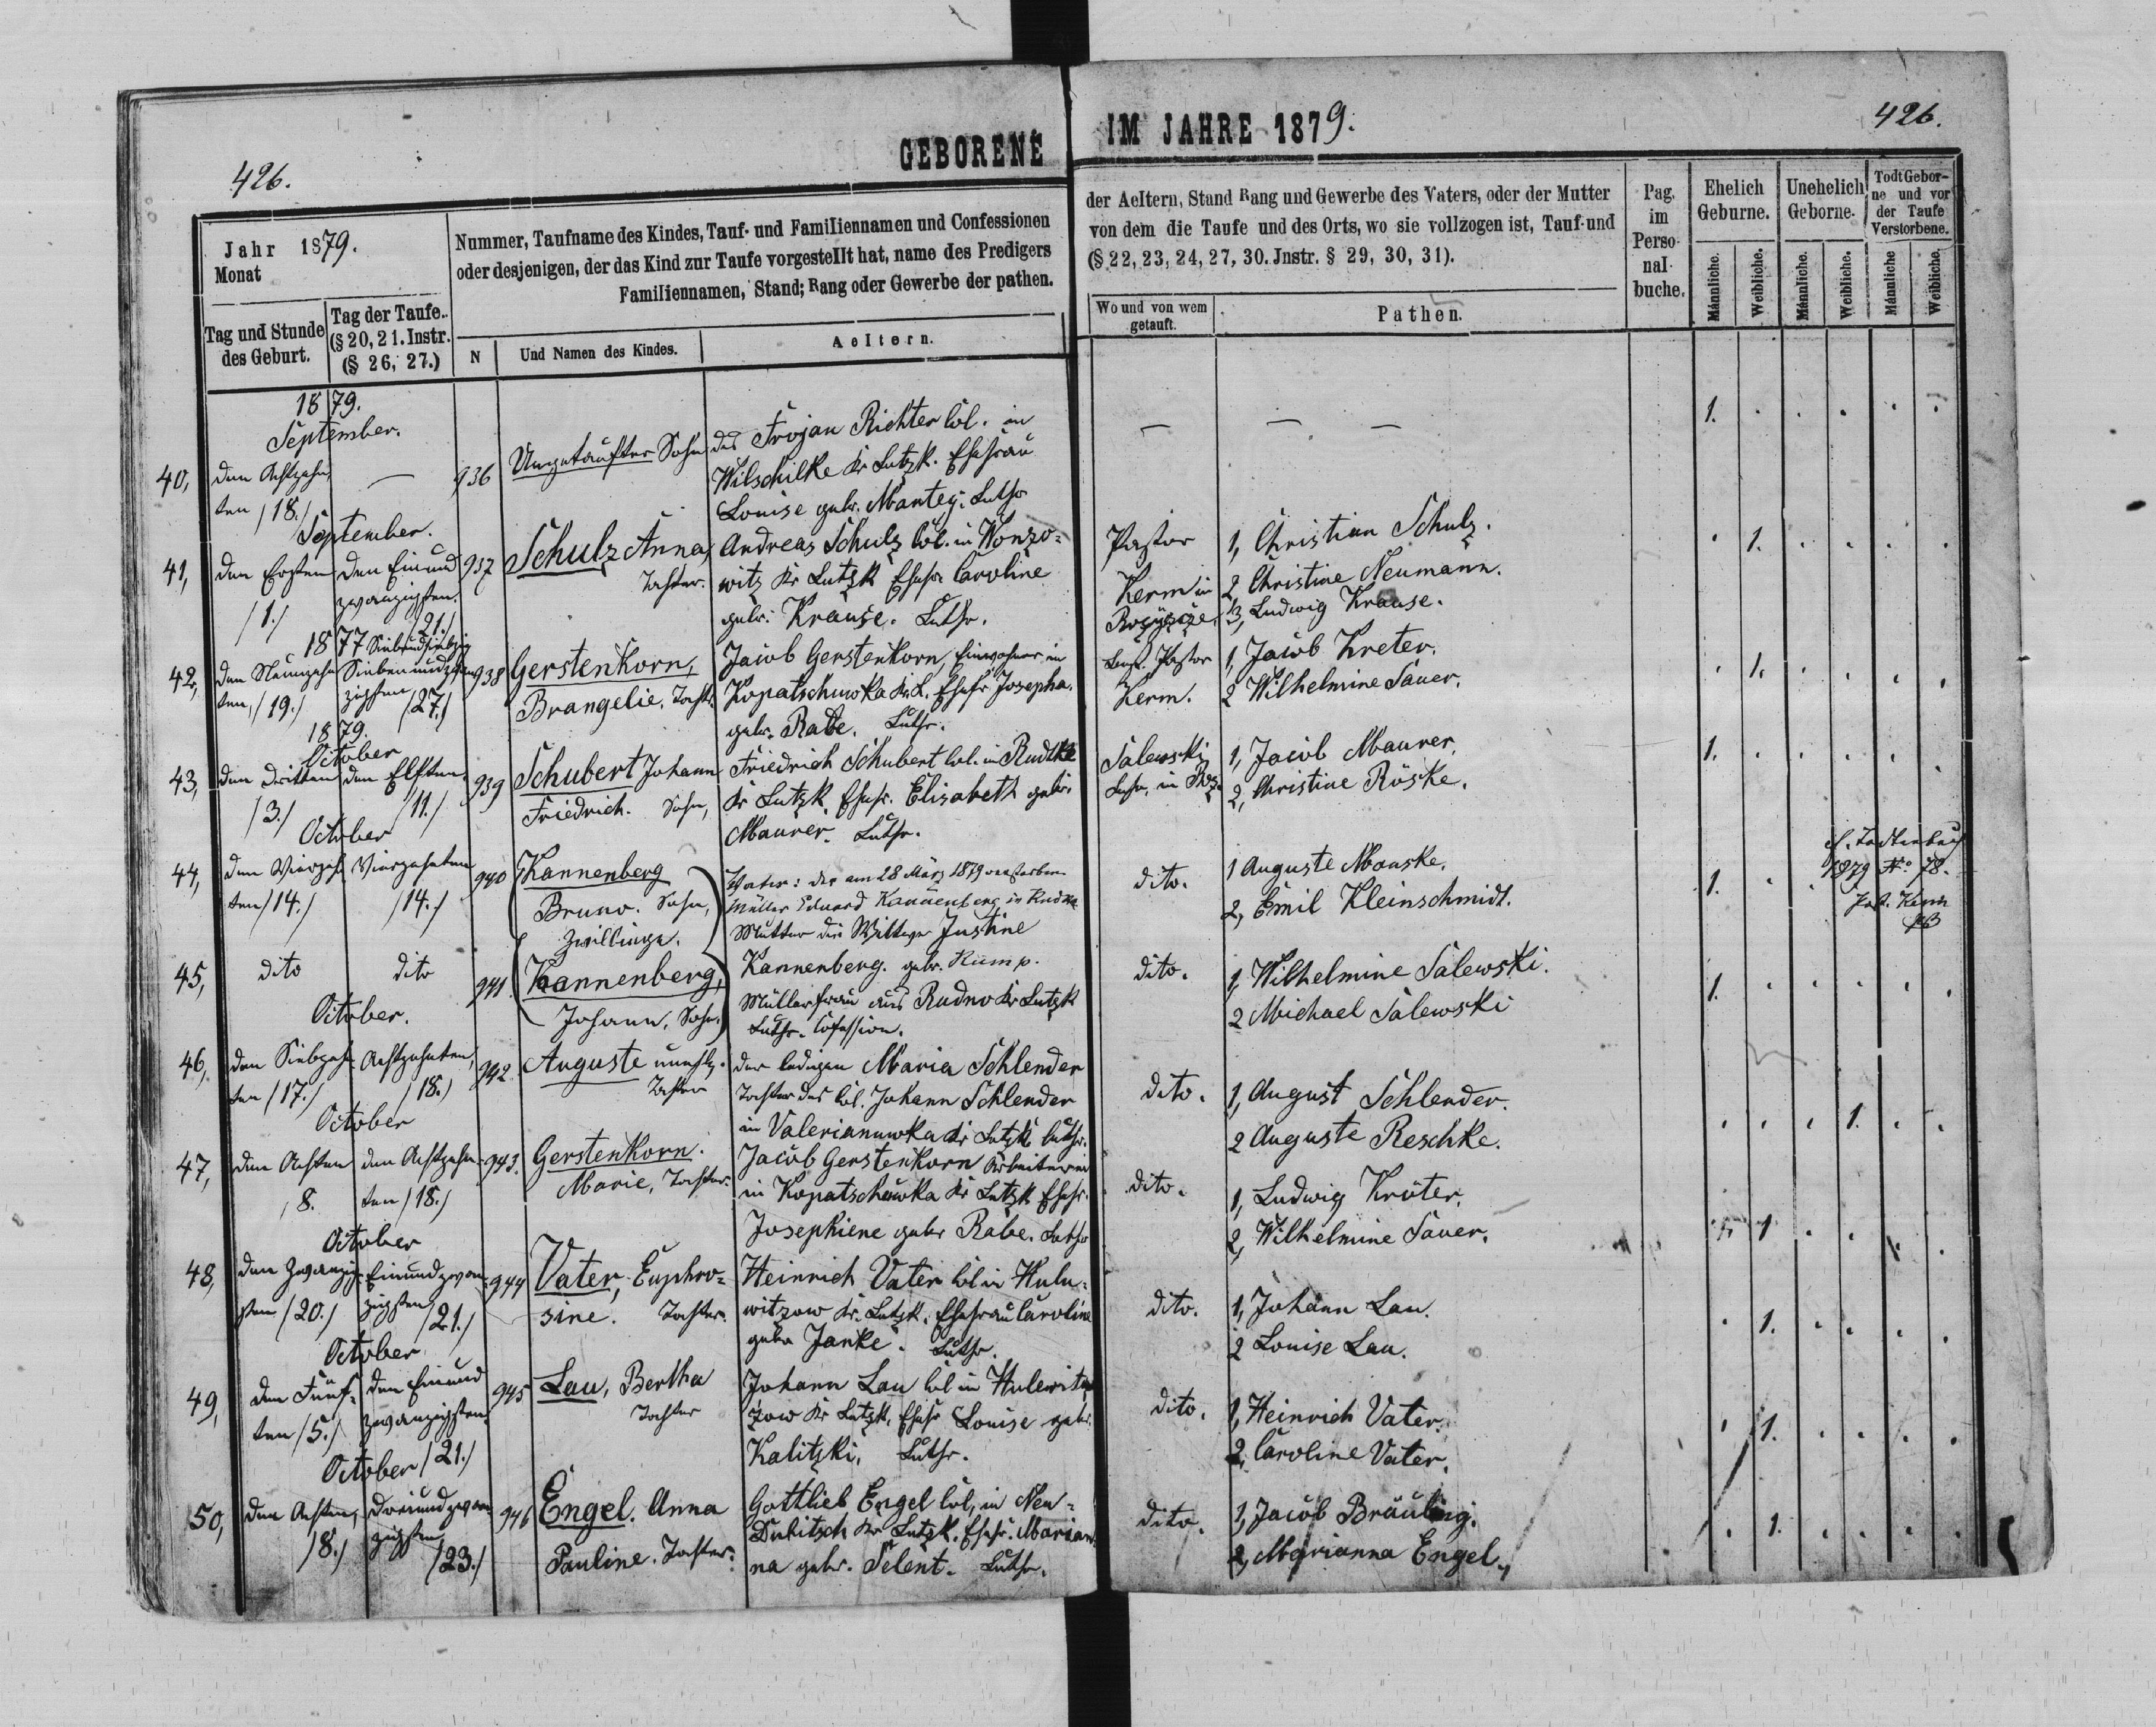 426.
GEBORENE
Jahr 1879.
Monat
Nummer, Taufname des Kindes, Tauf- und Familiennamen und Confessionen
oder desjenigen, der das Kind zur Taufe vorgestellt hat, name des Predigers
Familiennamen, Stand; Rang oder Gewerbe der pathen.
Tag und Stunde
des Geburt.
Tag der Taufe..
(§ 20, 21. Instr.
(§ 26, 27.)
N
Und Namen des Kindes.
Aeltern.
1879.
September.
40, den Achtzehn, — 936 Ungetaufter Sohn des Trojan Richter Col. in
ten /18./ Wilschilke Kr Lutzk. Ehefrau
Louise gebr. Mantey. Luthr
September.
41, den Ersten den Einund 937 Schulz Anna, Andreas Schulz Col. in Wonzo-
/1./ zwanzigsten. Tochter. witz Kr Lutzk Ehefr Caroline
/21./ gebr. Krause. Luthr.
1877 Siebundsiebzig
42, den Neunzehn Siebenundzwan 938 Gerstenkorn, Jacob Gerstenkorn, Einwohner in
ten, /19./ zigsten /27./ Brangelie. Tocht. Kopatschuwka Kr. L. Ehefr Josepha.
gebr. Rabe. Luthr.
1879.
October
43, den Dritten den Elften, 939 Schubert Johann Friedrich Schubert Col. in Rudtke
/3./ /11./ Friedrich. Sohn, Kr Lutzk, Ehefr. Elisabeth gebr.
Maurer. Luthr.
October
44, den Vierzeh Vierzehnten 940 Kannenberg Vater: der am 28 März 1879 verstorbene
ten /14./ /14./ Bruno. Sohn, Müller Eduard Kannenberg in Rudno
Zwillinge. Mutter die Wittwe Justine
45, dito dito 941. Kannenberg, Kannenberg. gebr. Rump.
Johann, Sohn. Müllerfrau aus Rudno Kr Lutzk
Luthr. Cofession.
October.
46, den Siebzeh Achtzehnten, 942. Auguste unehl. der ledigen Maria Schlender
ten /17./ /18./ Tochter Tochter des Col. Johann Schlender
in Valerianuwka Kr Lutzk luthr.
October
47, den Achten den Achtzehn- 943. Gerstenkorn. Jacob Gerstenkorn Arbeiter in
/8. ten /18./ Marie, Tochter. in Kopatschuwka Kr Lutzk Ehefr.
Josephiene gebr Rabe. Luthr
October
48, den Zwanzig- Einundzwan- 944 Vater, Euphro- Heinrich Vater Col in Hulu-
sten /20./ zigsten /21./ sine. Tochter. witzow Kr. Lutzk, Ehefrau Caroline
gebr Janke. Luthr.
October
49, den Fünf- den Einund 945 Lau, Bertha Johann Lau Col in Hulewitz
ten /5./ zwanzigsten Tochter zow Kr Lutzk, Ehefr Louise gebr.
/21./ Kalitzki. Luthr.
October
50, den Achten, dreiundzwan- 946 Engel. Anna Gottlieb Engel Col, in Neu-
/8./ zigsten /23./ Pauline. Tochter. Dubitsch Kr Lutzk. Ehefr. Marian-
na gebr. Selent. Luthr.
IM JAHRE 1879.
426.
der Aeltern, Stand Rang und Gewerbe des Vaters, oder der Mutter
von dem die Taufe und des Orts, wo sie vollzogen ist, Tauf- und
(§ 22, 23, 24, 27, 30. Jnstr. § 29, 30, 31).
Wo und von wem
getauft.
Pathen.
Pag.
im
Perso-
nal-
buche.
Ehelich
Geburne.
Unehelich
Geborne.
Todt Gebor-
ne und vor
der Taufe
Verstorbene.
Männliche.
Weibliche.
Männliche.
Weibliche.
Männliche
Weibliche.
— — — 1. . . . . .
Pastor 1, Christian Schulz. . 1. . . . .
Kerm in 2, Christine Neumann.
Rozyszcze. 3, Ludwig Krause.
Pastor 1, Jacob Kreter. . 1. . . . .
Kerm. 2 Wilhelmine Sauer.
Salewski 1, Jacob Maurer. 1. . . . . .
2, Christine Röske.
dito. 1 Auguste Manske. 1. . .
2, Emil Kleinschmidt.
1879 No 78.
dito. 1, Wilhelmine Salewski. 1. . . . . .
2 Michael Salewski
dito. 1, August Schlender. . . . 1. . .
2 Auguste Reschke.
dito. 1, Ludwig Kröter. . 1 . . . .
2, Wilhelmine Sauer.
dito. 1, Johann Lau. . 1. . . . .
2 Louise Lau.
dito. 1, Heinrich Vater. . 1. . . . .
2, Caroline Vater.
dito. 1, Jacob Bräuling. . 1. . . . .
2, Marianna Engel.